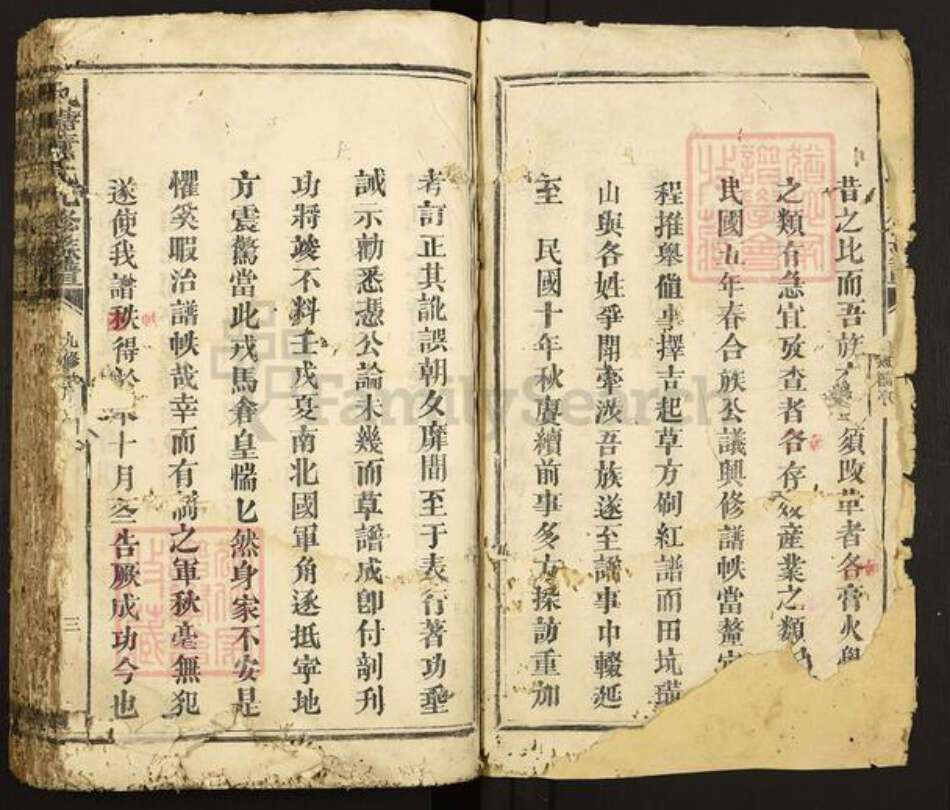 昔之比而吾族 須改革者各膏火
之類有急宜攷查者各存 産業之類
民國五年春合族公議興修譜帙當釐
程推舉値事擇吉起草方刷紅譜而田坑
山與各姓爭開牽涉吾族遂至譜事中輟延
至 民國十年秋賡續前事多方採訪重加
考訂正其訛誤朝夂靡間至于表行著功垂
誡示勸悉憑公論未幾而草譜成卽付剞刋
功將竣不料壬戌夏南北國軍角逐抵寧地
方震驚當此戎馬倉皇惴㔫然身家不安是
懼奚暇治譜帙哉幸而有 之軍秋毫無犯
遂使我譜秩得於 十月 告厥成功今也
氏九修族譜
九修
三
FamilySearch